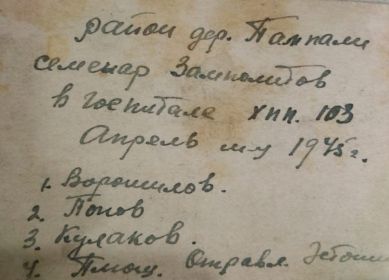 район дер. Тампали
семенар Замполитов
в госпитале хпп. 103
Апрель м-ц 1945 г.
1. Ворошилов.
2. Попов
3. Кулаков.
4. Отправл.